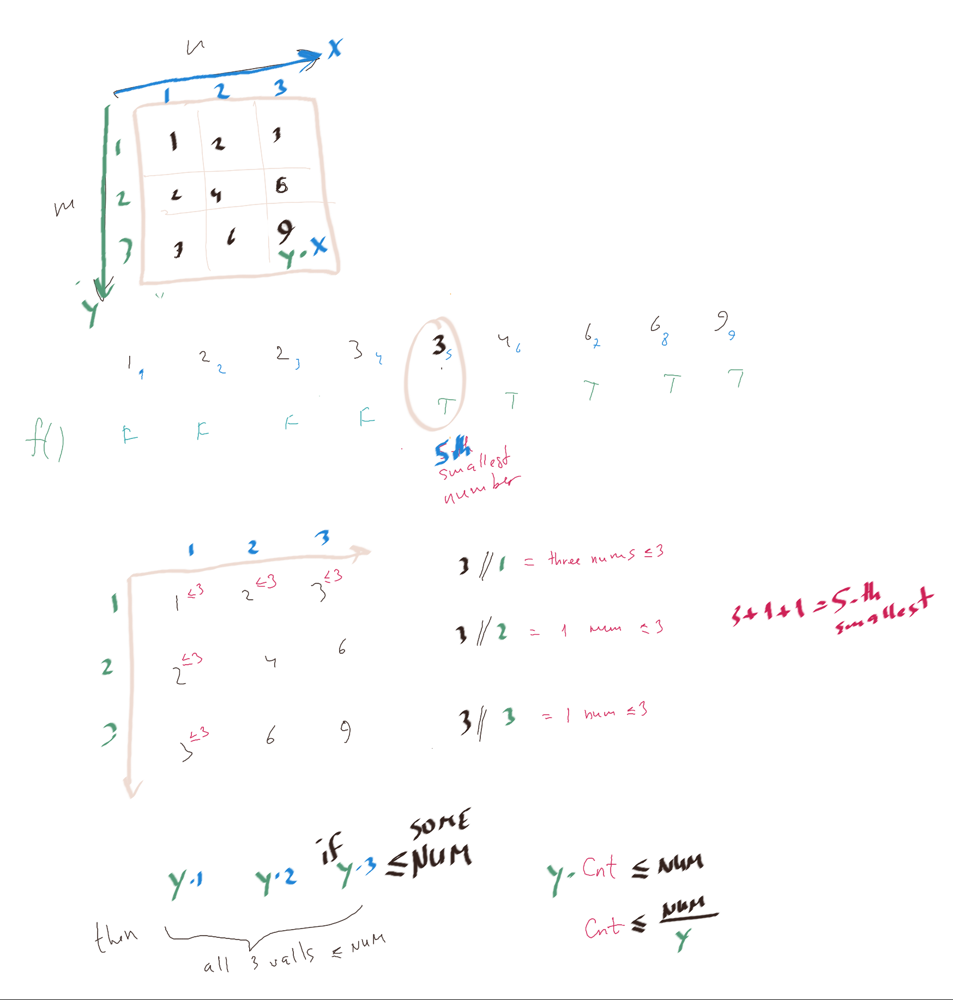 n
x
1 2 3
1 1 2 3
m 2 2 4 6
3 3 6 9
y·x
y
1₁ 2₂ 2₃ 3₄ 3₅ 4₆ 6₇ 6₈ 9₉
f() F F F F T T T T T
5th
smallest
number
1 2 3
1 1≤3 2≤3 3≤3 3//1 = three nums ≤3
3+1+1=5-th
smallest
2 2≤3 4 6 3//2 = 1 num ≤3
3 3≤3 6 9 3//3 = 1 num ≤3
if SOME
y·1 y·2 y·3 ≤NUM
then all 3 valls ≤ NUM
y·Cnt ≤ NUM
Cnt ≤ NUM/y